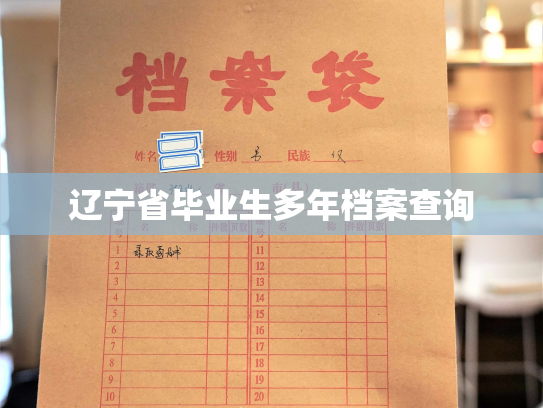 档案袋
姓名 性别 男 民族 汉
辽宁省毕业生多年档案查询
名 称 件数 页数 名 称 件数 页数
1 录取通知书 11
2 12
3 13
4 14
5 15
6 16
7 17
8 18
9 19
10 20